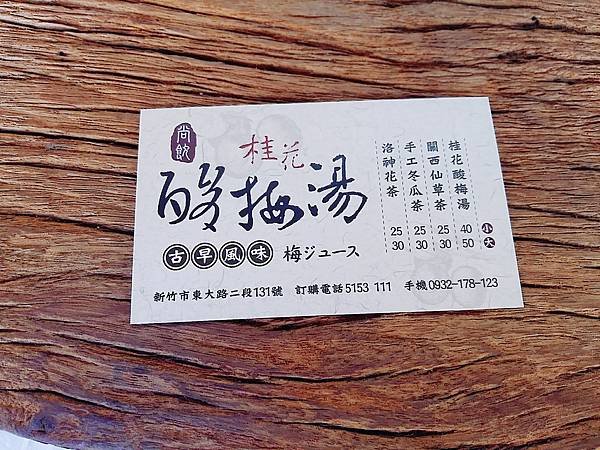 尚飲
桂花
酸梅湯
古早風味 梅ジュース
桂花酸梅湯 40 50
關西仙草茶 25 30
手工冬瓜茶 25 30
洛神花茶 25 30
小 大
新竹市東大路二段131號 訂購電話5153 111 手機0932-178-123